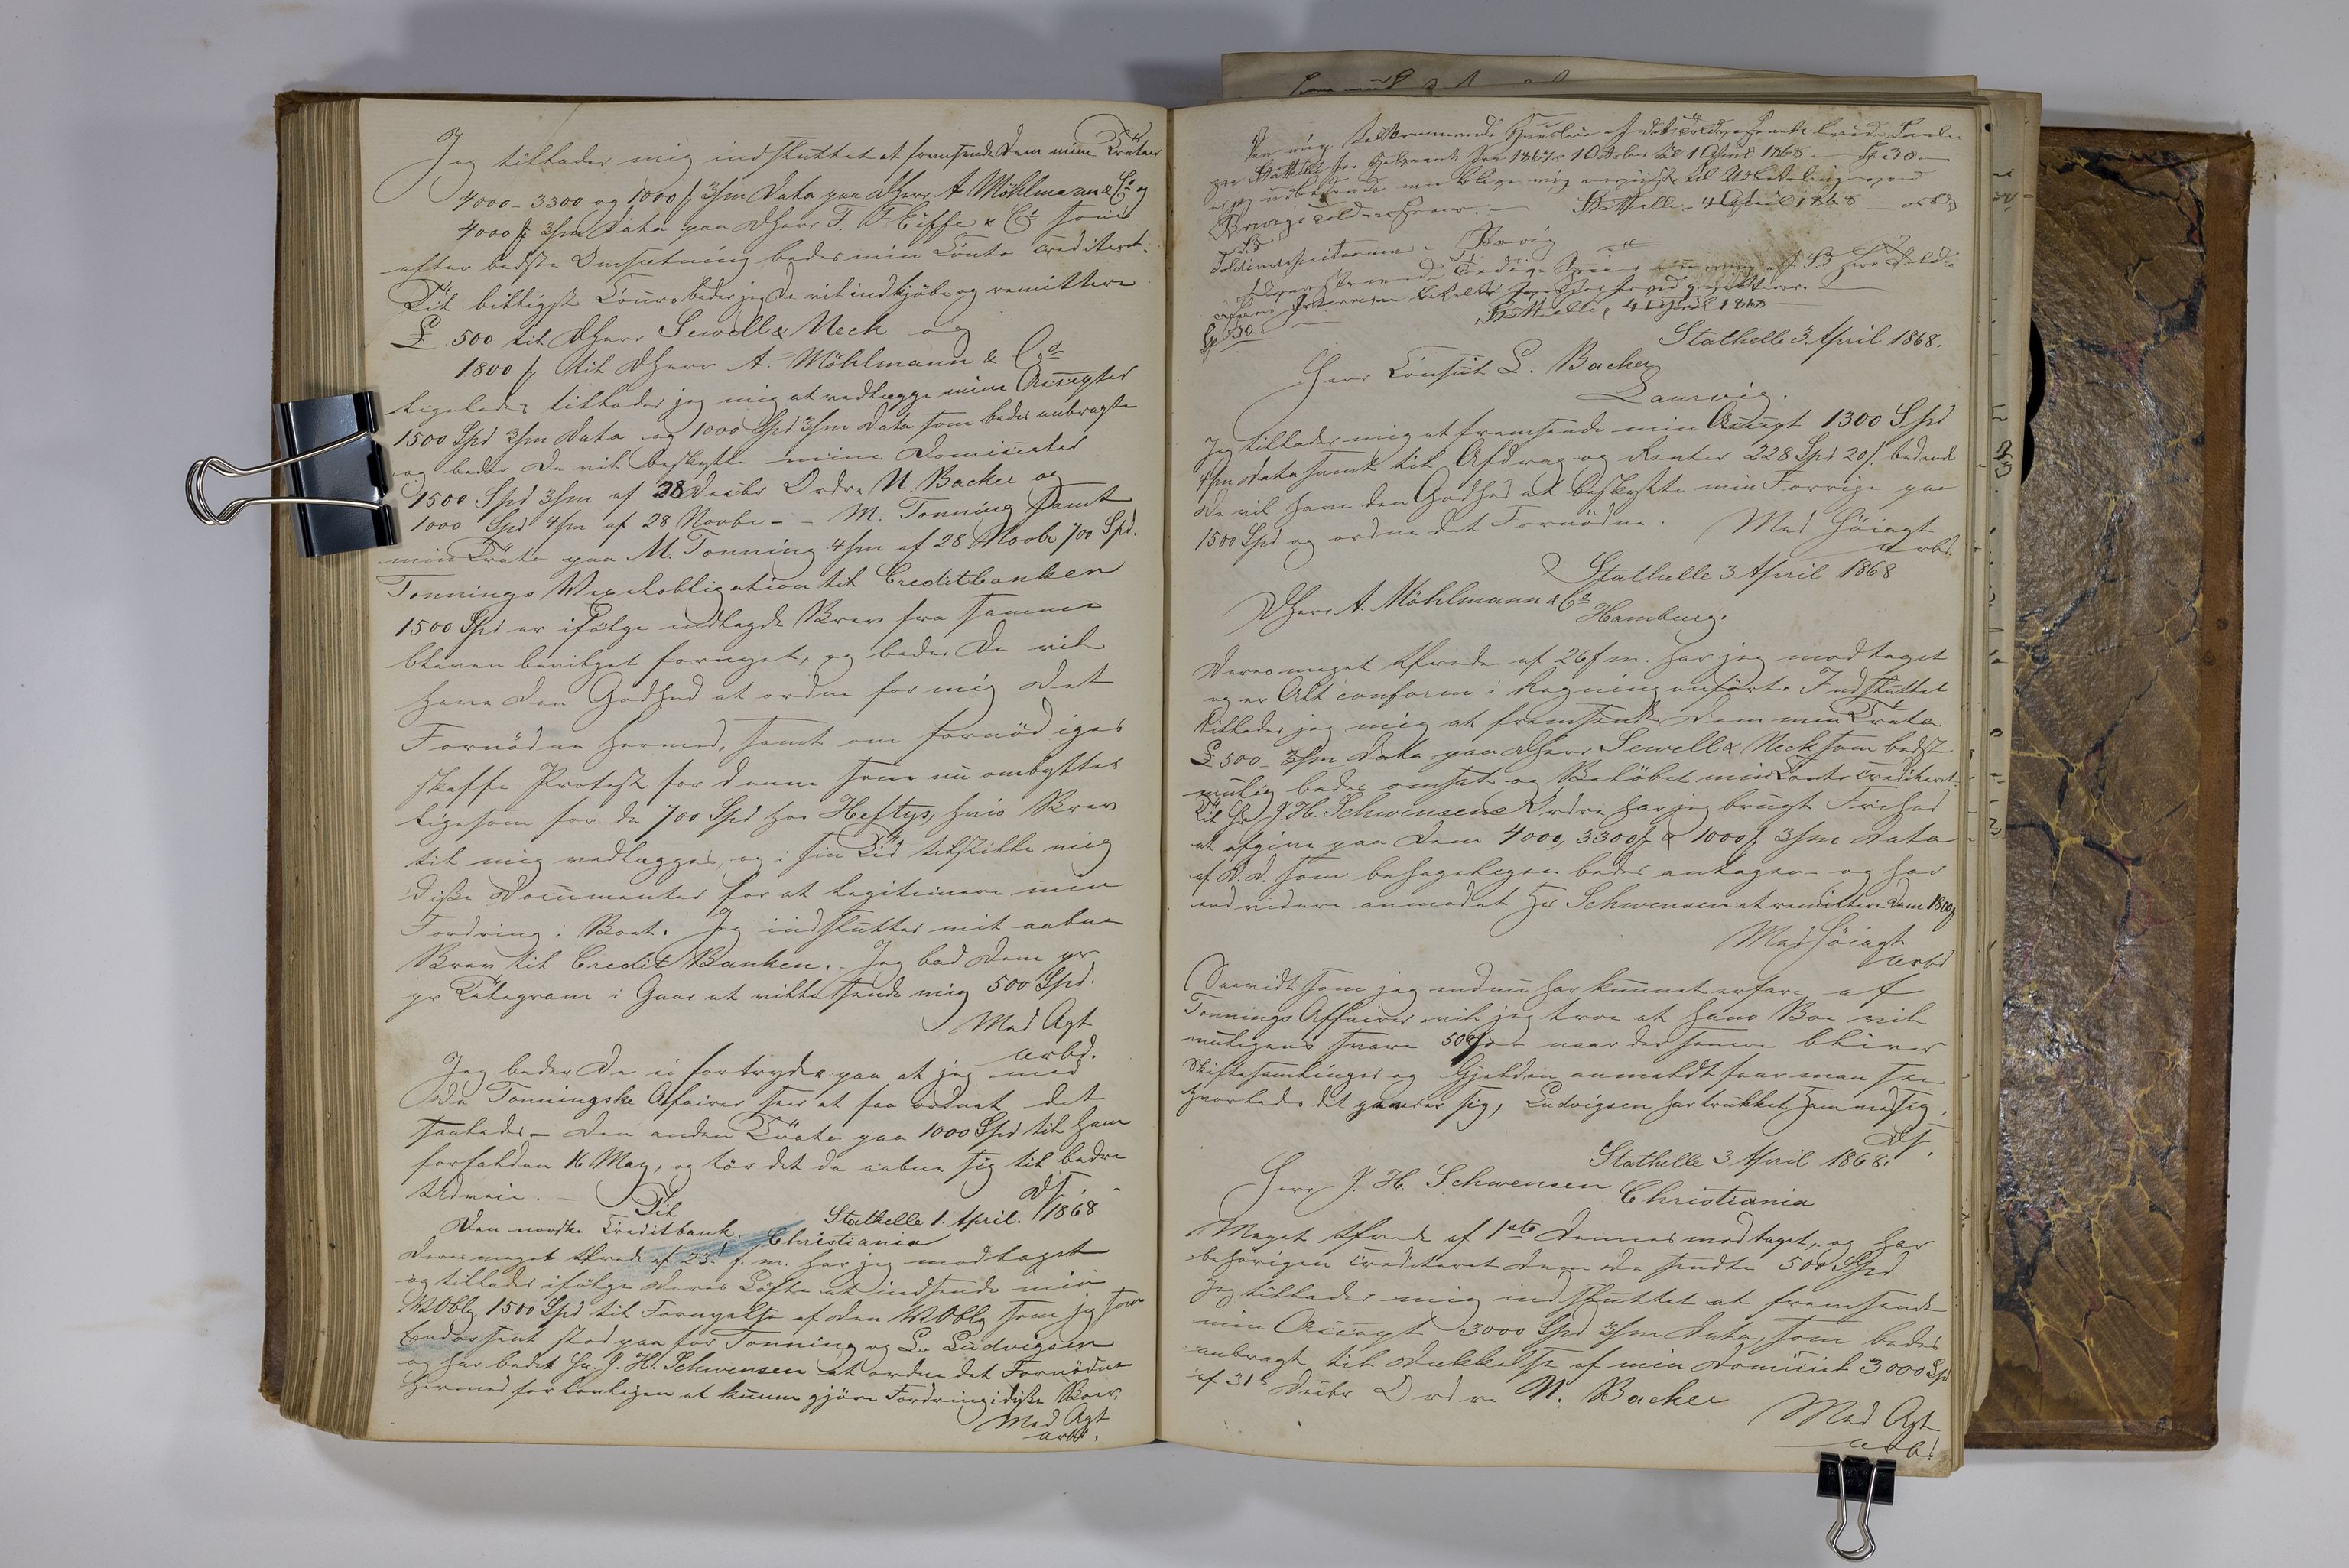 Jeg tillader mig indsluttet at fremsende Dem mine Tratner
4000 - 3300 og 1000 f 3/m Data paa DHerr A Möhlmann & Co og
4000 f 3/m Data paa DHerr F. Eiffe & Co som
efter bedste Omsetning bedes min Conto crediteret.
Til billigst Cours beder jeg De vil indkjøbe og remittere
£ 500 til DHerr Sewell & Neck og
1800 f til DHerr A. Möhlmann & Co
ligeledes tillader jeg mig at vedlægge mine Accepter
1500 Spd 3/m Data og 1000 Spd 3/m Data som bedes anbragte
og beder De vil beskytte mine Domicieter
1500 Spd 3/m af 28 Decbr Ordre N. Backer og
1000 Spd 4/m af 28 Novbr - - M. Tonning samt
min Trata paa M. Tonning 4/m af 28 Novbr 700 Spd.
Tonnings Vexelobligation til Creditbanken
1500 Spd er ifølge indlagde Brev fra samme
bleven bevilget fornyet, og beder De vil
have den Godhed at ordne for mig det
Fornødne hermed, samt om fornødiges
skaffe Protest for denne som nu ombyttes
ligesom for de 700 Spd hos Heftys, hvis Brev
til mig vedlægges, og i sin Tid tilstille mig
disse Documenter for at legitimere min
Fordring i Boet. Jeg indslutter mit aabne
Brev til Credit Banken. Jeg bad Dem pr
pr Telegram i Gaar at ville sende mig 500 Spd.
Med Agt
arbd.
Jeg beder De ei fortryder paa at jeg med
de Tonningske Afairer seer at faa ordnet det
saaledes - Den anden Trata paa 1000 Spd til ham
forfalden 16 May, og tør det da aabne sig til bedre
Udveie. -
DS.
Til
Den norske Creditbank. Stathelle 1. April. 1868
Christiania
Deres meget ærede af 23 f. m. har jeg modtaget
og tillader ifølge Deres Løfte at indsende min
VOblg 1500 Spd til Fornyelse af den VOblg som jeg som
Endossent stod paa for Tonning og L. Ludvigsen
og har bedet Hr. J. H. Schwensen at ordne det Fornødne
hermed for lovligen at kunne gjøre Fordring i disse Boer.
Med Agt
arbd.
Den mig tilkommende Huusleie af
paa Stathelle for Halvaaret fra 1867 1 October til 1 April 1868 - Sp 30 -
Brevigs Toldkammer. - Stathelle, 4 April 1868 arbd
Toldinspecteuren i Brevig
Stathelle, 4 April 1868
Sp 30
Stathelle 3 April 1868.
Herr Consul L. Backer
Laurvig.
Jeg tillader mig at fremsende min Accept 1300 Spd
4/m Data samt til Afdrag og Renter 228 Spd 20 /. bedende
De vil have den Godhed at beskytte min Forrige paa
1500 Spd og ordne det Fornødne. Med Høiagt
arbd.
Stathelle 3 April 1868
DHerr A. Möhlmann & Co
Hamburg.
Deres meget Ærede af 26 f m. har jeg modtaget
og er Alt conform i Regning anført. Indsluttet
tillader jeg mig at fremsende Dem min Trata
£ 500 - 3/m Data paa DHerr Sewell & Neck som bedst
mulig bedes omsat og Beløbet min Conto crediteret.
Til Hr J. H. Schwensens Ordre har jeg brugt Frihed
at afgive paa Dem 4000, 3300 f & 1000 f 3/m Data
af D. D. som behageligen bedes antagen og har
endvidere anmodet Hr Schwensen at remittere Dem 1800 f
Med Høiagt
arbd
Saavidt som jeg endnu har kunnet erfare af
Tonnings Affairer vil jeg troe at hans Boe vil
muligens svare 50% - naar der senere bliver
Skiftesamlinger og Gjelden anmeldt faar man see
hvorledes det stander sig, Ludvigsen har trukket ham med sig.
DS.
Stathelle 3 April 1868.
Herr J. H. Schwensen
Christiania
Meget Ærede af 1ste Dennes modtaget, og har
behørigen crediteret Dem de sendte 500 Spd.
Jeg tillader mig indsluttet at fremsende
min Accept 3000 Spd 3/m Data, som bedes
anbragt til Dækkelse af min Domiciel 3000 Sp
af 31 Decbr Ordre N. Backer
Med Agt
arbd